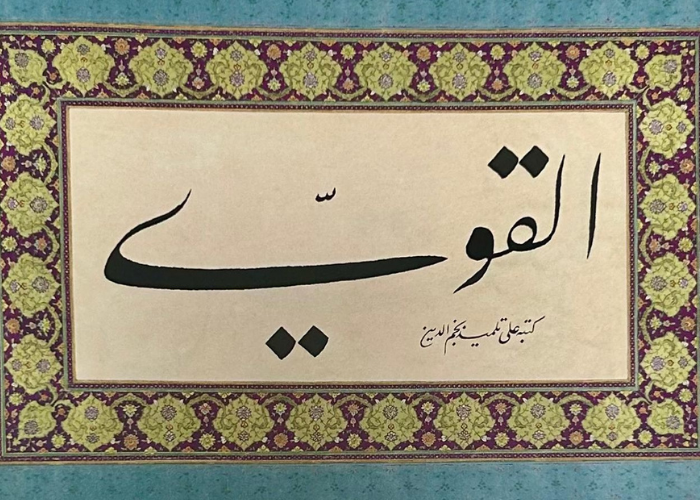 القويّ
كتبه علي تلميذ نجم الدين